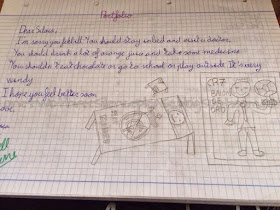 Portfolio
Dear Selma,
I'm sorry you feel ill. You should stay in bed and visit a doctor.
You should drink a lot of orange juice and take some medicine.
You shouldn't eat chocolate or go to school or play outside. It's very
windy
I hope you feel better soon